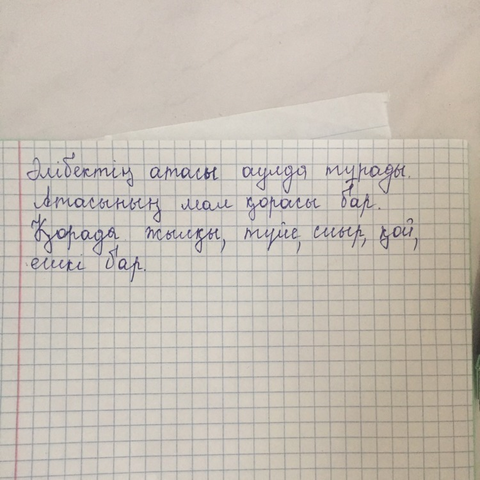 Әлібектің атасы ауылда тұрады.
Атасының мал қорасы бар.
Қорада жылқы, түйе, сиыр, қой,
ешкі бар.